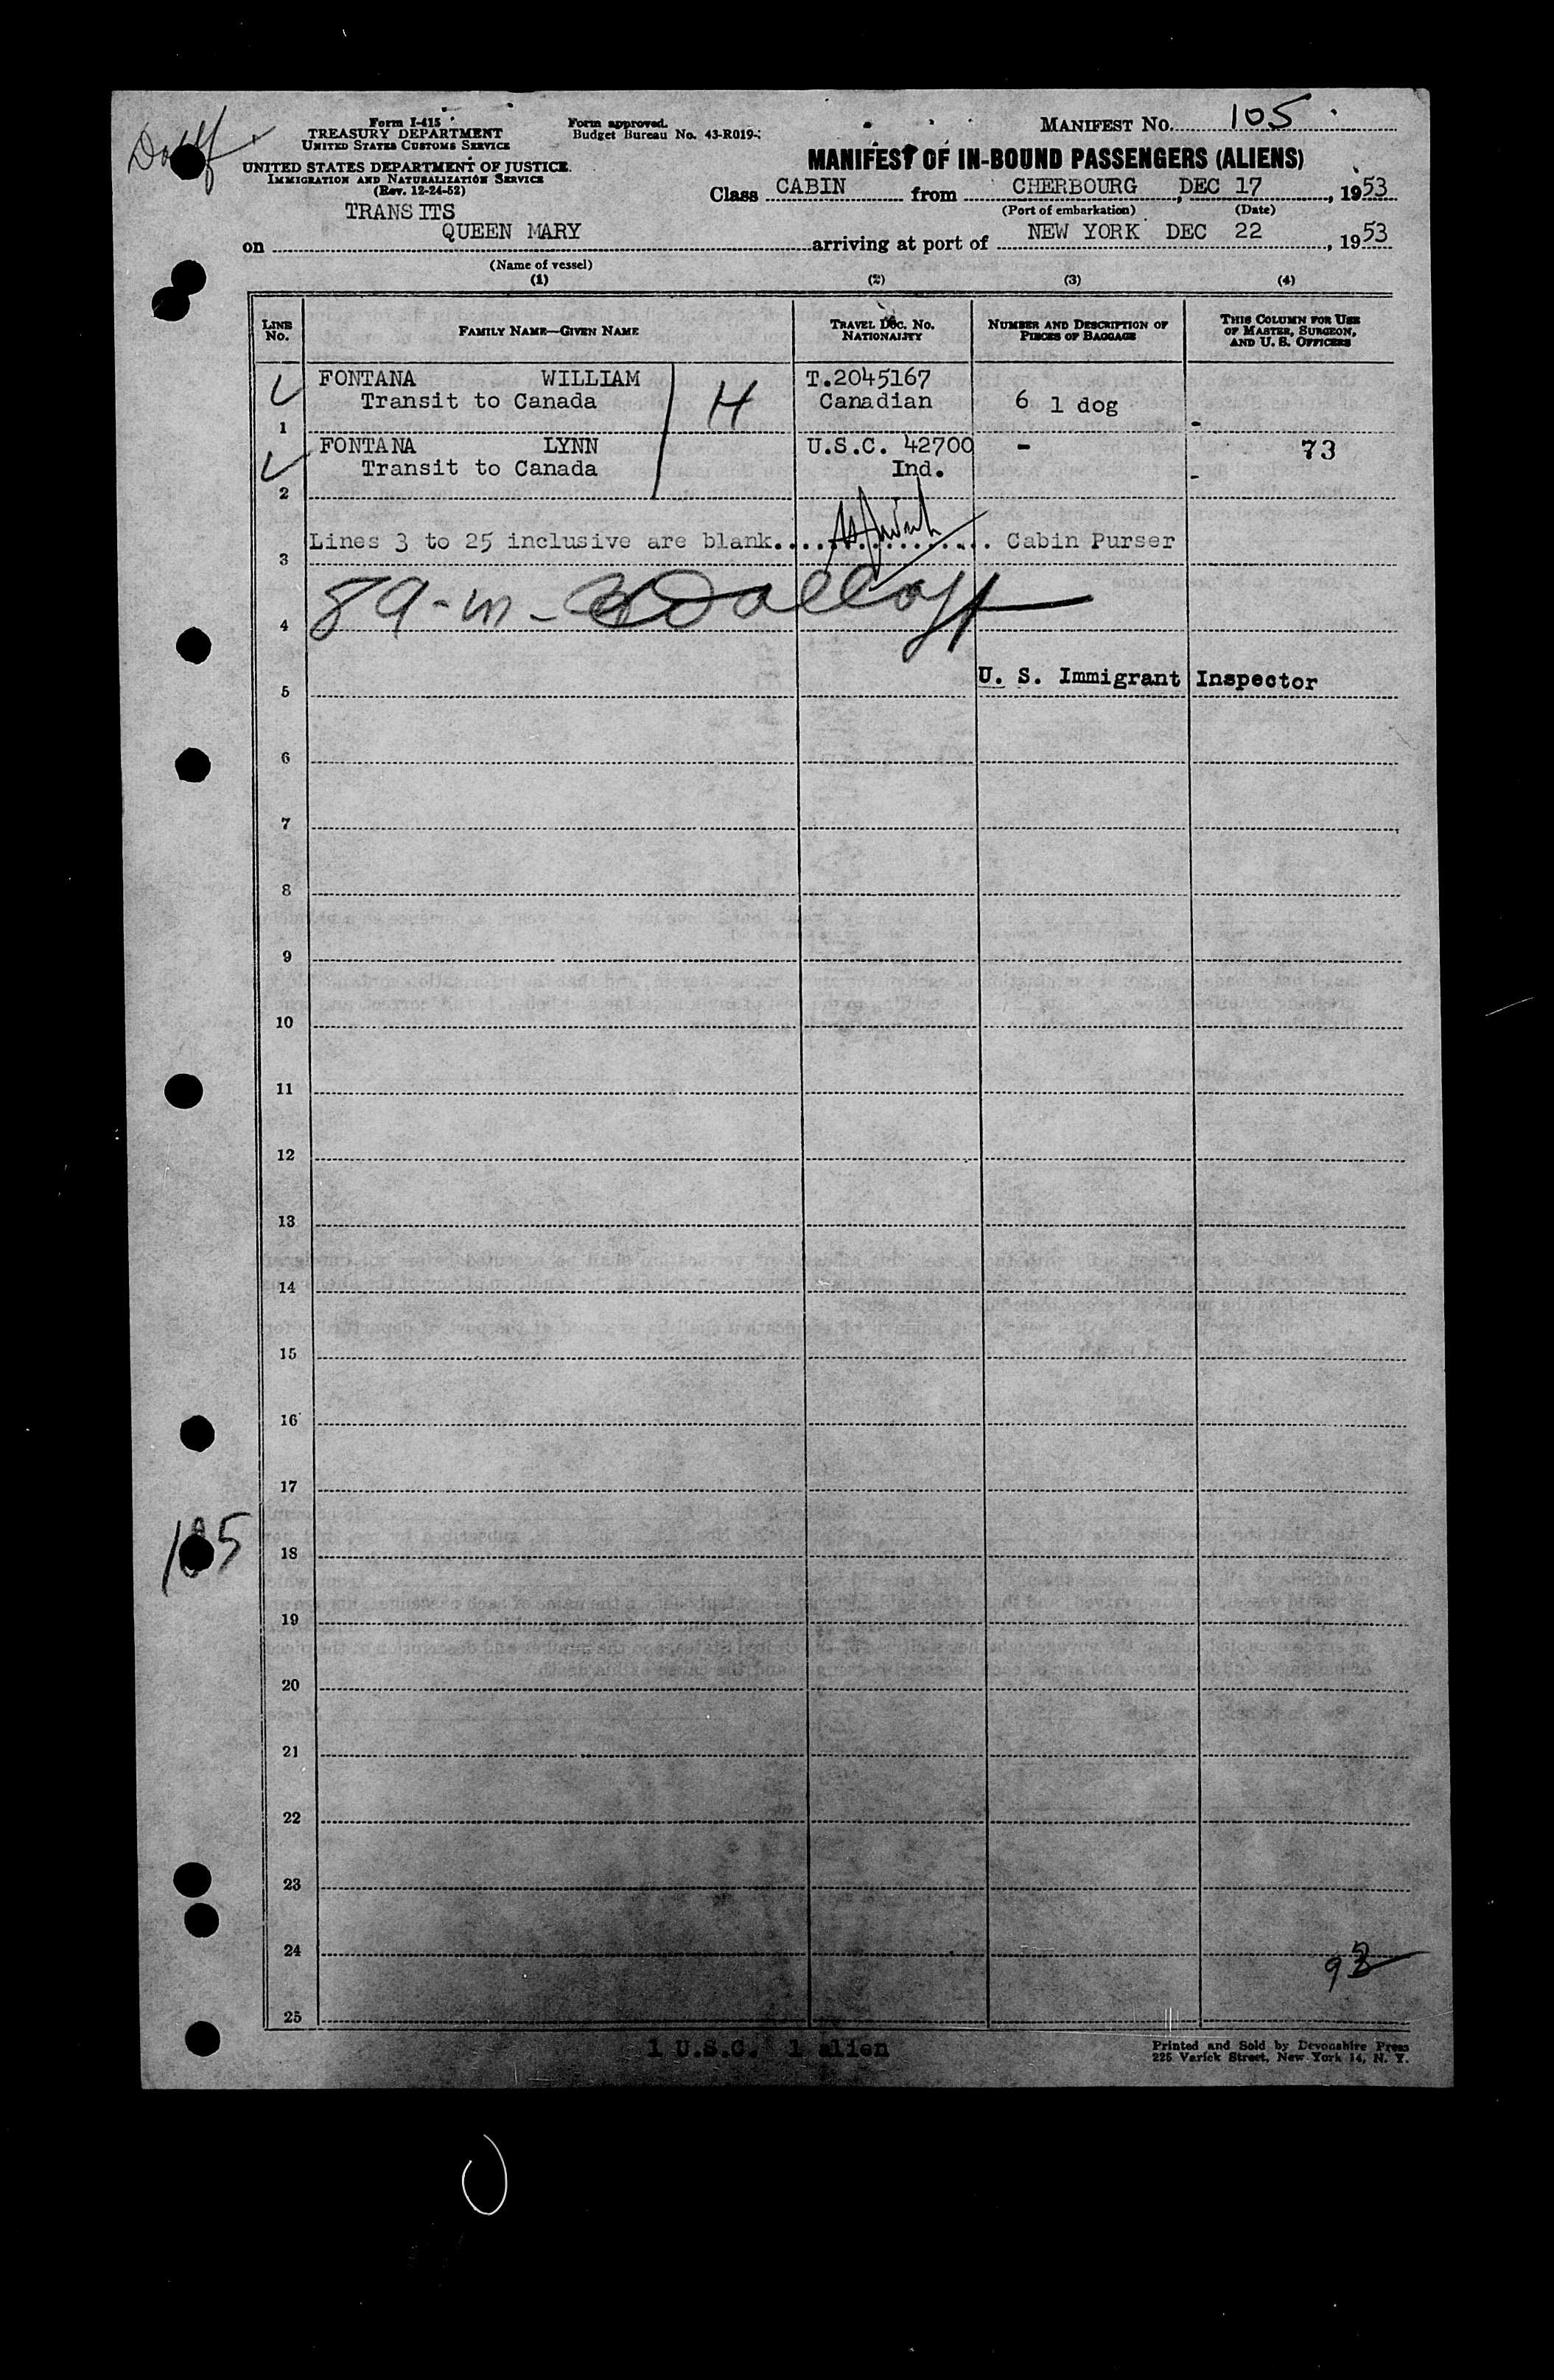 Form I-415
TREASURY DEPARTMENT
UNITED STATES CUSTOMS SERVICE
UNITED STATES DEPARTMENT OF JUSTICE
IMMIGRATION AND NATURALIZATION SERVICE
(Rev. 12-24-52)
Form approved.
Budget Bureau No. 43-R019-
MANIFEST No. 105
MANIFEST OF IN-BOUND PASSENGERS (ALIENS)
Class CABIN from CHERBOURG, DEC 17, 1953
(Port of embarkation) (Date)
TRANSITS
on QUEEN MARY arriving at port of NEW YORK DEC 22, 1953
(Name of vessel)
(1) (2) (3) (4)
LINE No. FAMILY NAME—GIVEN NAME TRAVEL DOC. NO. NATIONALITY NUMBER AND DESCRIPTION OF PIECES OF BAGGAGE THIS COLUMN FOR USE OF MASTER, SURGEON, AND U. S. OFFICERS
FONTANA WILLIAM H T.2045167
1 Transit to Canada Canadian 6 1 dog -
FONTANA LYNN U.S.C. 42700 - 73
2 Transit to Canada Ind. -
3 Lines 3 to 25 inclusive are blank. Cabin Purser
4
5 U. S. Immigrant Inspector
6
7
8
9
10
11
12
13
14
15
16
17
105
18
19
20
21
22
23
24
25
1 U.S.C. 1 alien
Printed and Sold by Devonshire Press
225 Varick Street, New York 14, N. Y.